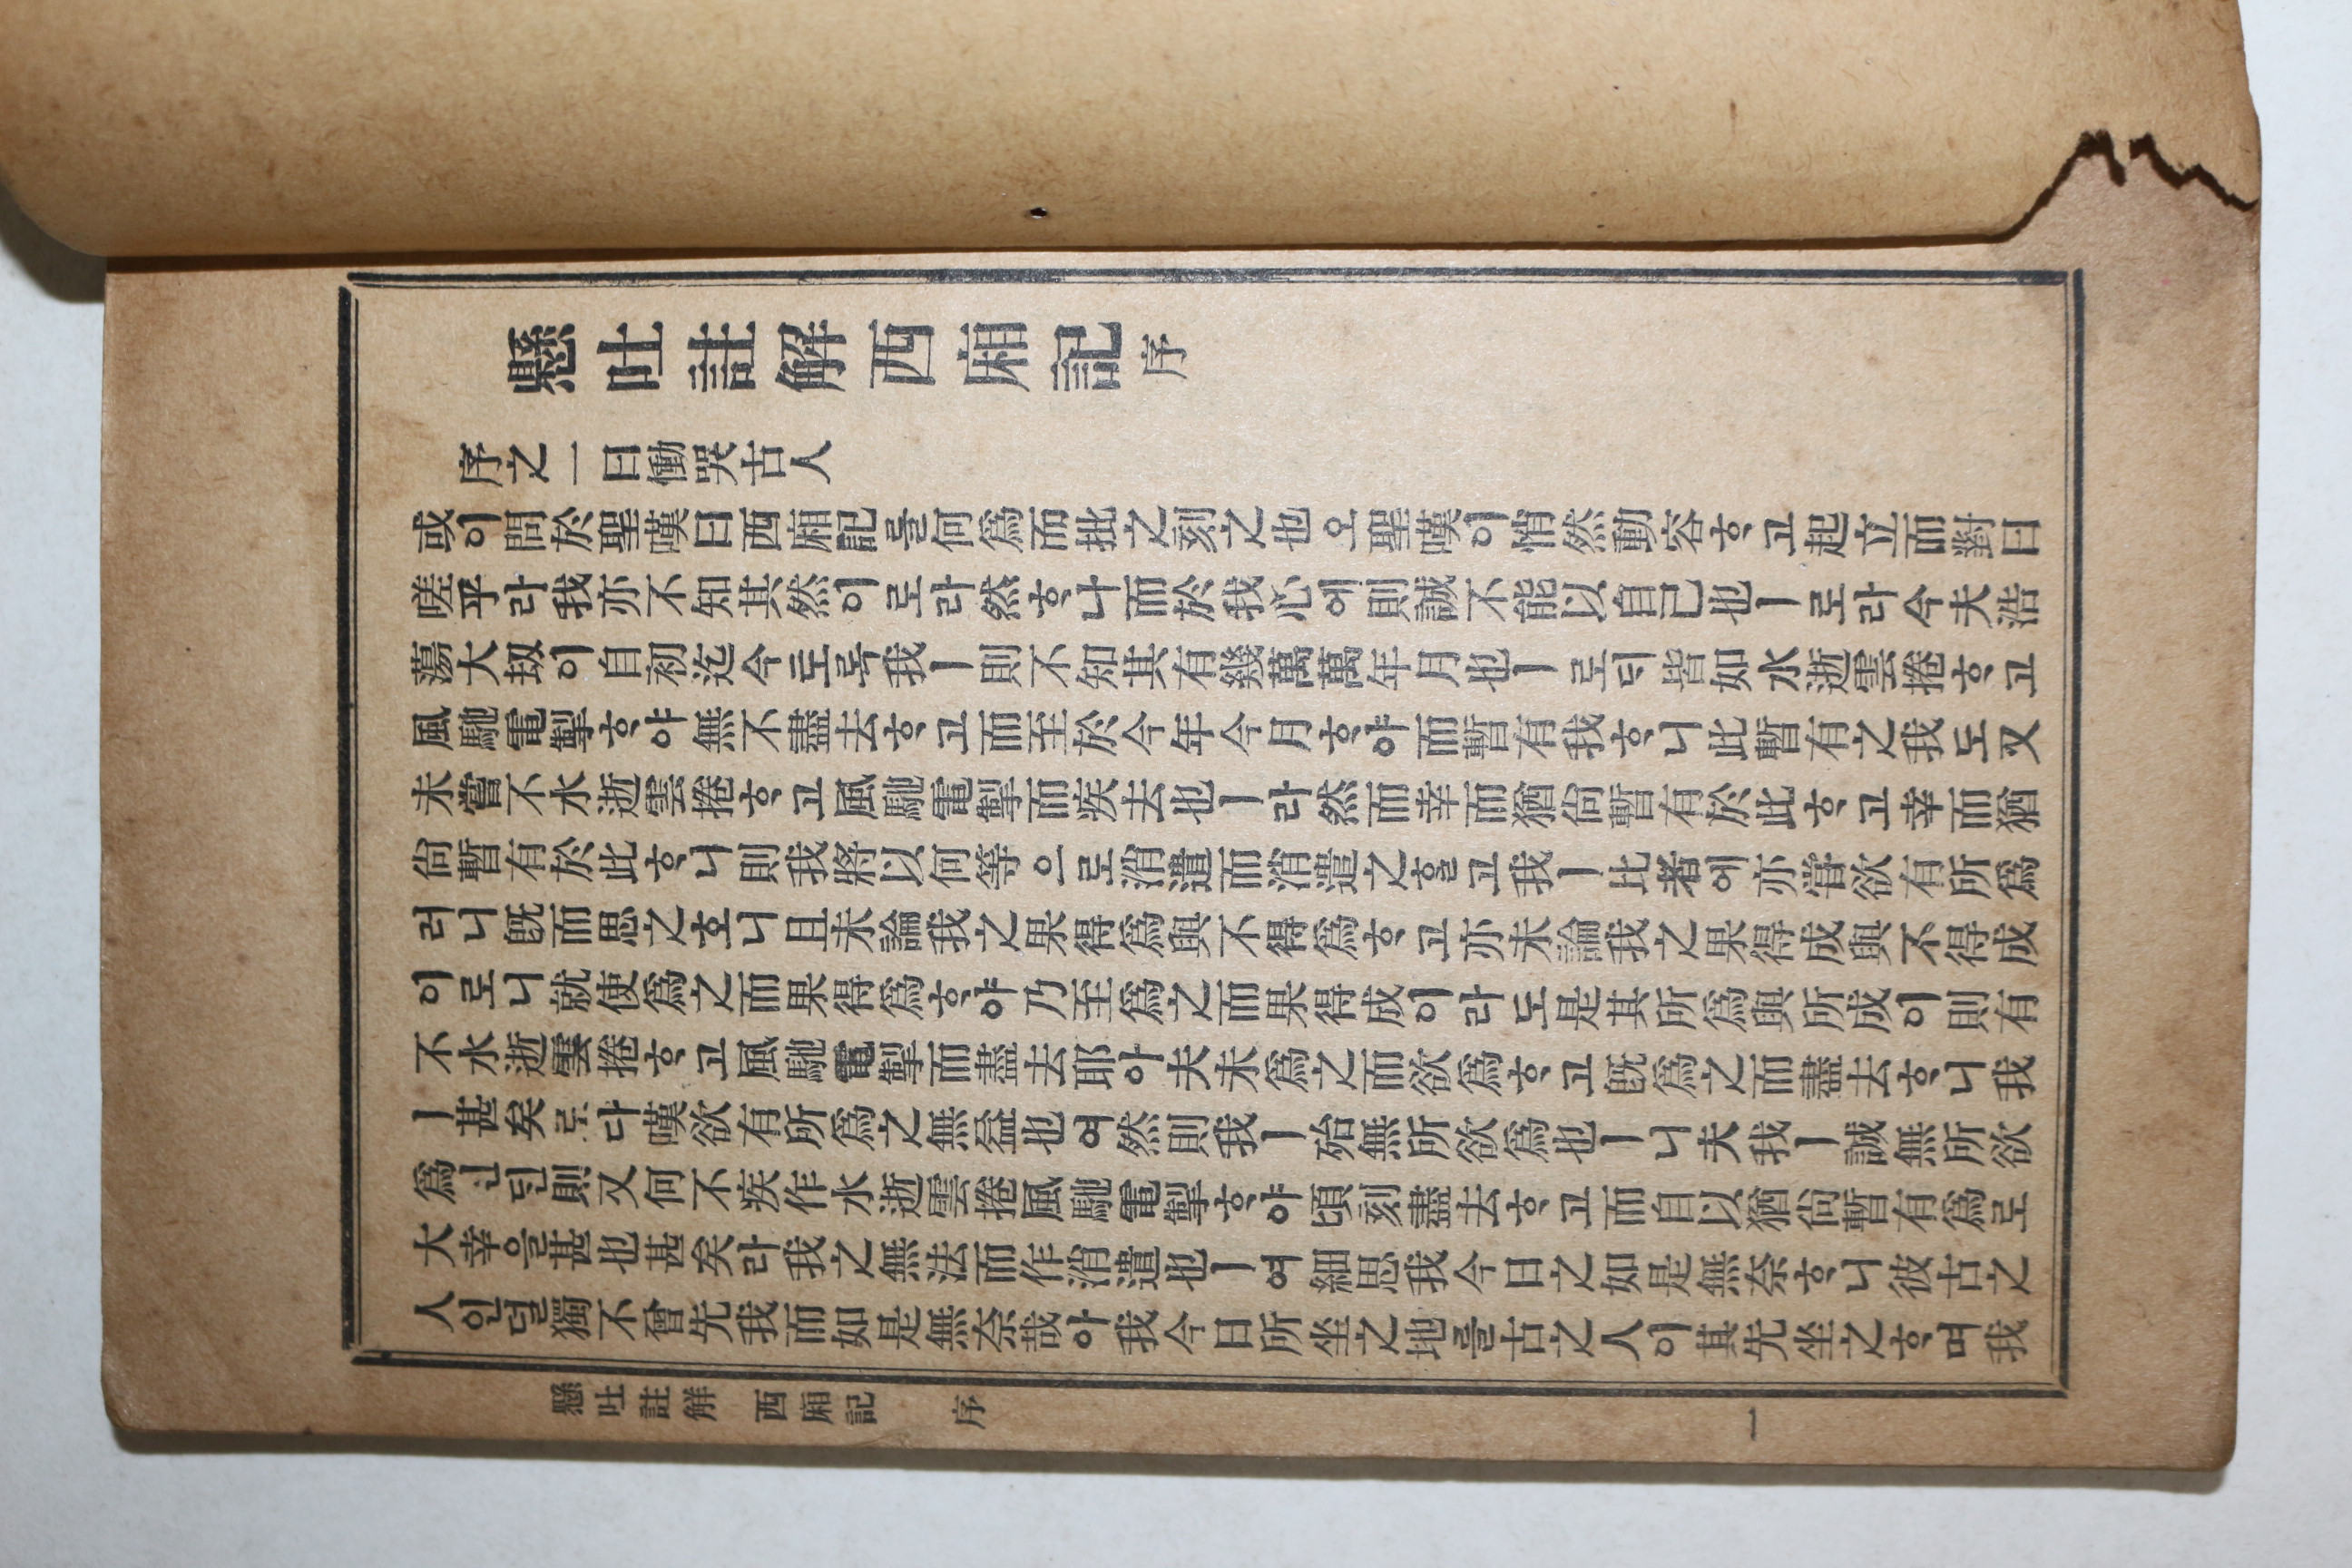 懸吐註解西廂記序
序之一曰慟哭古人
或이問於聖嘆曰西廂記를何爲而批之刻之也오聖嘆이悄然動容ᄒᆞ고起立而對曰
嗟乎라我亦不知其然이로라然ᄒᆞ나而於我心에則誠不能以自己也ㅣ로라今夫浩
蕩大刼이自初迄今토록我ㅣ則不知其有幾萬萬年月也ㅣ로ᄃᆡ皆如水逝雲捲ᄒᆞ고
風馳電掣ᄒᆞ야無不盡去ᄒᆞ고而至於今年今月ᄒᆞ야而暫有我ᄒᆞ니此暫有之我도又
未嘗不水逝雲捲ᄒᆞ고風馳電掣而疾去也ㅣ라然而幸而猶尙暫有於此ᄒᆞ고幸而猶
尙暫有於此ᄒᆞ니則我將以何等으로消遣而消遣之ᄒᆞᆯ고我ㅣ比者에亦嘗欲有所爲
러니旣而思之호니且未論我之果得爲與不得爲ᄒᆞ고亦未論我之果得成與不得成
이로니就使爲之而果得爲ᄒᆞ야乃至爲之而果得成이라도是其所爲與所成이則有
不水逝雲捲ᄒᆞ고風馳電掣而盡去耶아夫未爲之而欲爲ᄒᆞ고旣爲之而盡去ᄒᆞ니我
ㅣ甚矣로다嘆欲有所爲之無益也여然則我ㅣ殆無所欲爲也ㅣ니夫我ㅣ誠無所欲
爲ㄴᄃᆡᆫ則又何不疾作水逝雲捲風馳電掣ᄒᆞ야頃刻盡去ᄒᆞ고而自以猶尙暫有爲로
大幸을甚也甚矣라我之無法而作消遣也ㅣ여細思我今日之如是無奈ᄒᆞ니彼古之
人인덜獨不曾先我而如是無奈哉아我今日所坐之地를古之人이其先坐之ᄒᆞ며我
懸吐註解 西廂記 序 一